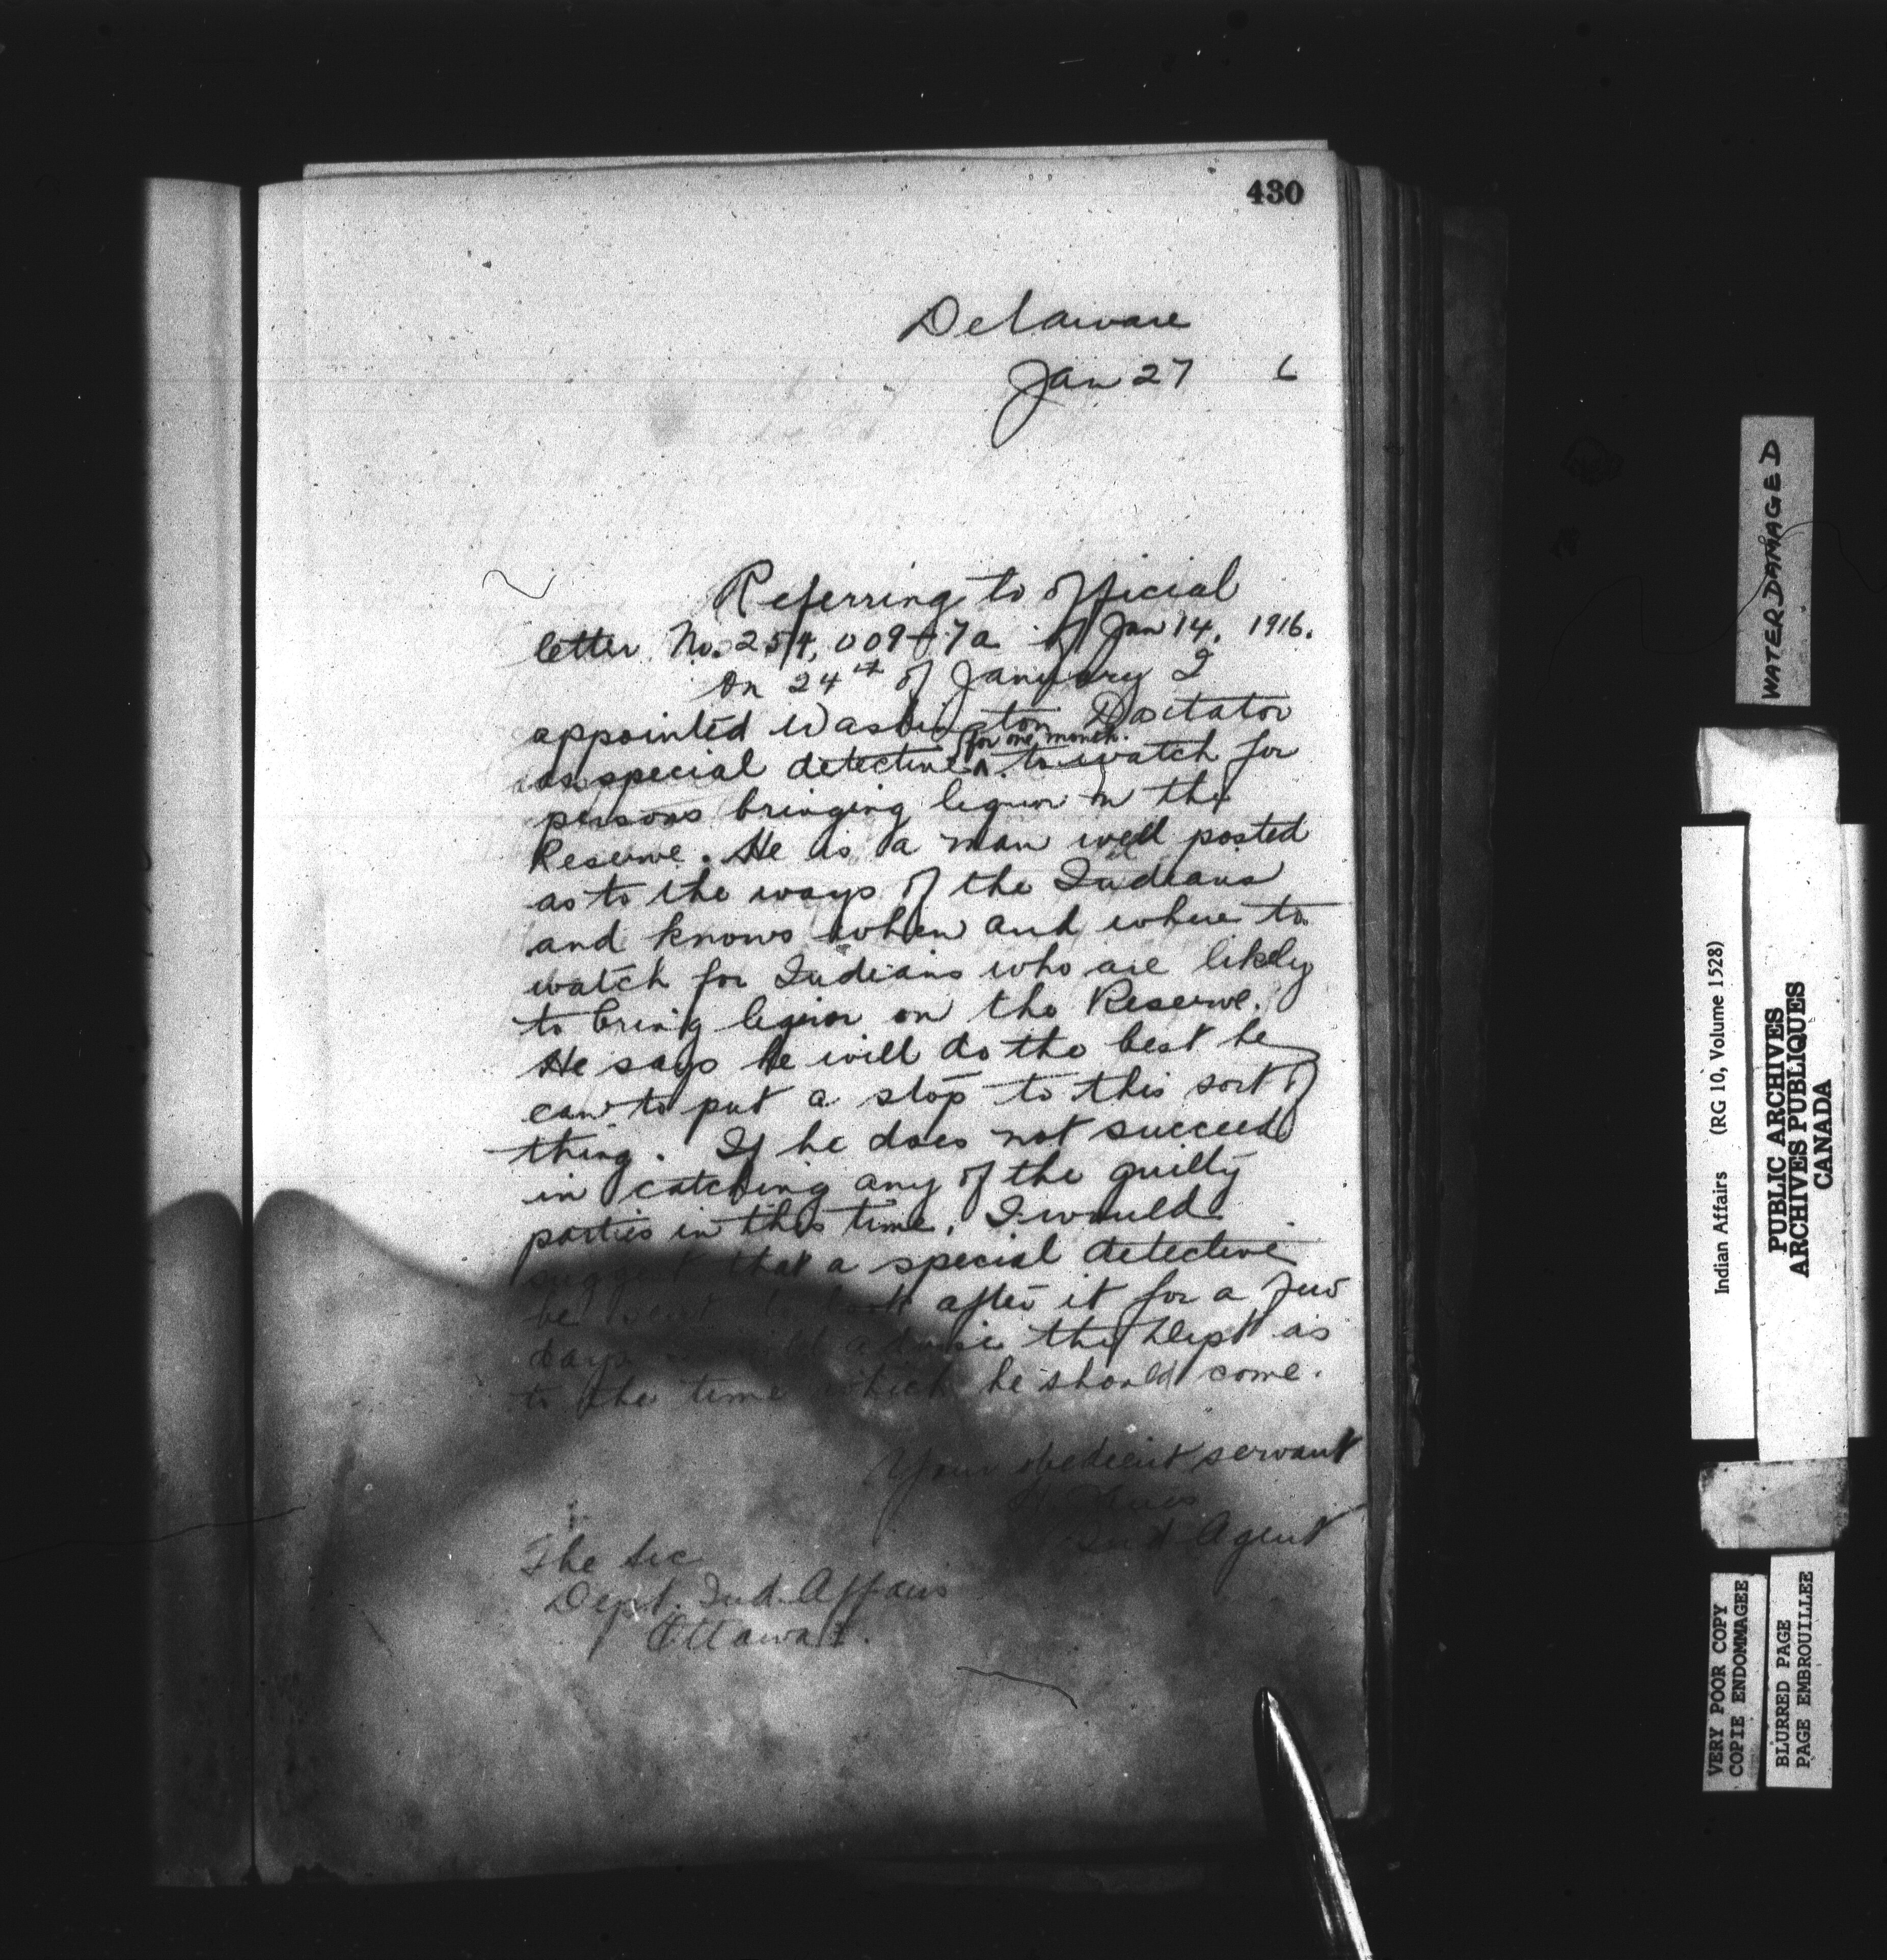 430
Delaware
Jan 27 6
Referring to official
letter No. 254,009-7a of Jan 14, 1916.
On 24th of January I
appointed Washington
for one month.
as special detective ^ to watch for
persons bringing liquor on the
Reserve. He is a man well posted
as to the ways of the Indians
and knows when and where to
watch for Indians who are likely
to bring liquor on the Reserve.
He says he will do the best he
can to put a stop to this sort of
thing. If he does not succeed
in catching any of the guilty
parties in this time, I would
suggest that a special detective
be sent to look after it for a few
days advise the Dept as
to the time which he should come.
Your obedient servant
Ind Agent
The Sec
Dept. Ind. Affairs
Ottawa
WATER DAMAGED
Indian Affairs (RG 10, Volume 1528)
PUBLIC ARCHIVES
ARCHIVES PUBLIQUES
CANADA
VERY POOR COPY
COPIE ENDOMMAGEE
BLURRED PAGE
PAGE EMBROUILLEE